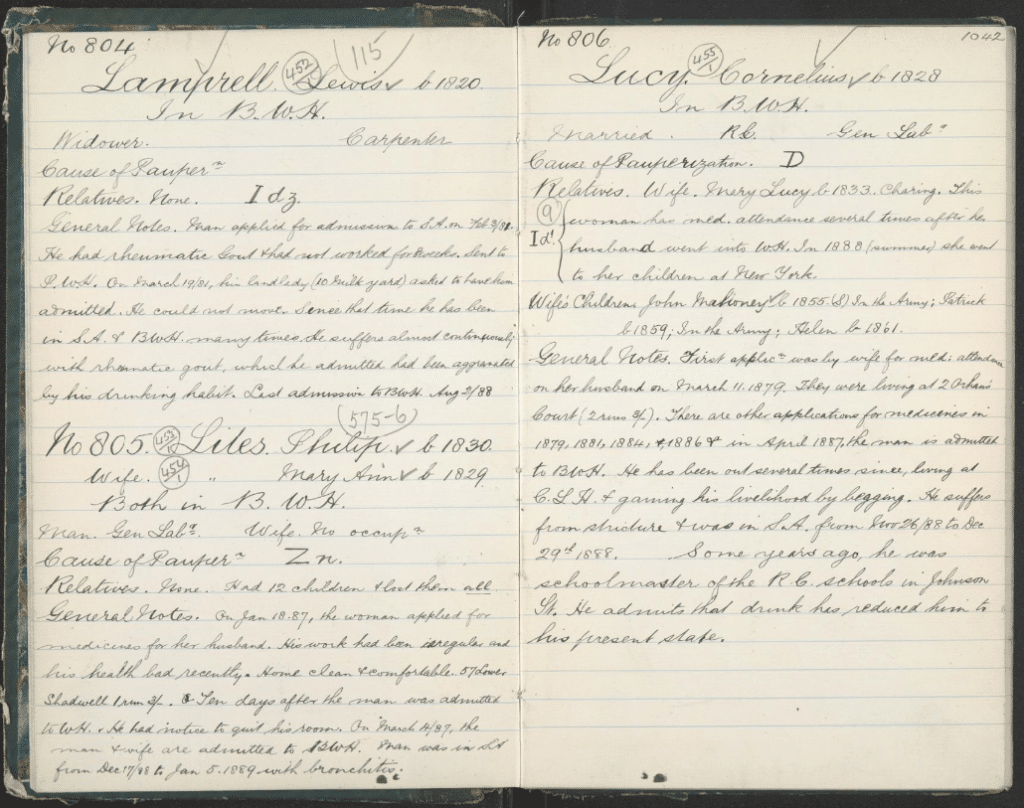 No 804
452/1 115
Lamprell. Lewis b 1820.
In B.W.H.
Widower. Carpenter
Cause of Pauperⁿ
Relatives. None. I d z.
General Notes. Man applied for admission to S.A. on Feb 3/81.
He had rheumatic Gout & had not worked for weeks. Sent to
P.W.H. On March 19/81, his landlady (10 Milk yard) asked to have him
admitted. He could not move. Since that time he has been
in S.A. & BWH. many times. He suffers almost continuously
with rheumatic gout, which he admitted had been aggravated
by his drinking habit. Last admission to BWH Aug 2/88
(575-6)
No 805. 453/1 Liles. Philip b 1830.
Wife. 454/1 " Mary Ann b 1829
Both in B.W.H.
Man. Gen Labʳ. Wife. No occupⁿ
Cause of Pauperⁿ Z n.
Relatives. None. Had 12 children & lost them all
General Notes. On Jan 18.87, the woman applied for
medicines for her husband. His work had been irregular and
his health bad recently. Home clean & comfortable. 57 Lower
Shadwell 1 rum 3/-. Ten days after the man was admitted
to WH. He had notice to quit his room. On March 4/87, the
man & wife are admitted to BWH. Man was in SA
from Dec 17/88 to Jan 5. 1889 with bronchitis.
No 806 1042
Lucy. 455/1 Cornelius b 1828
In B.W.H.
Married. R.C. Gen Labʳ
Cause of Pauperization. D
Relatives. Wife. Mary Lucy b 1833. Charing. This
(a) woman has med. attendance several times after her
I d' husband went into WH. In 1888 (summer) she went
to her children at New York.
Wife's Children. John Mahoney b 1855 (S) In the Army; Patrick
b 1859; In the Army; Helen b 1861.
General Notes. First applicⁿ was by wife for med: attendance
on her husband on March 11. 1879. They were living at 2 Orchard
Court (2 rums 3/). There are other applications for medicines in
1879, 1881, 1884, & 1886 & in April 1887, the man is admitted
to BWH. He has been out several times since, living at
C.L.H. & gaining his livelihood by begging. He suffers
from stricture & was in S.A. from Nov 26/88 to Dec
29ᵗ 1888. Some years ago, he was
schoolmaster of the R.C. schools in Johnson
St. He admits that drink has reduced him to
his present state.